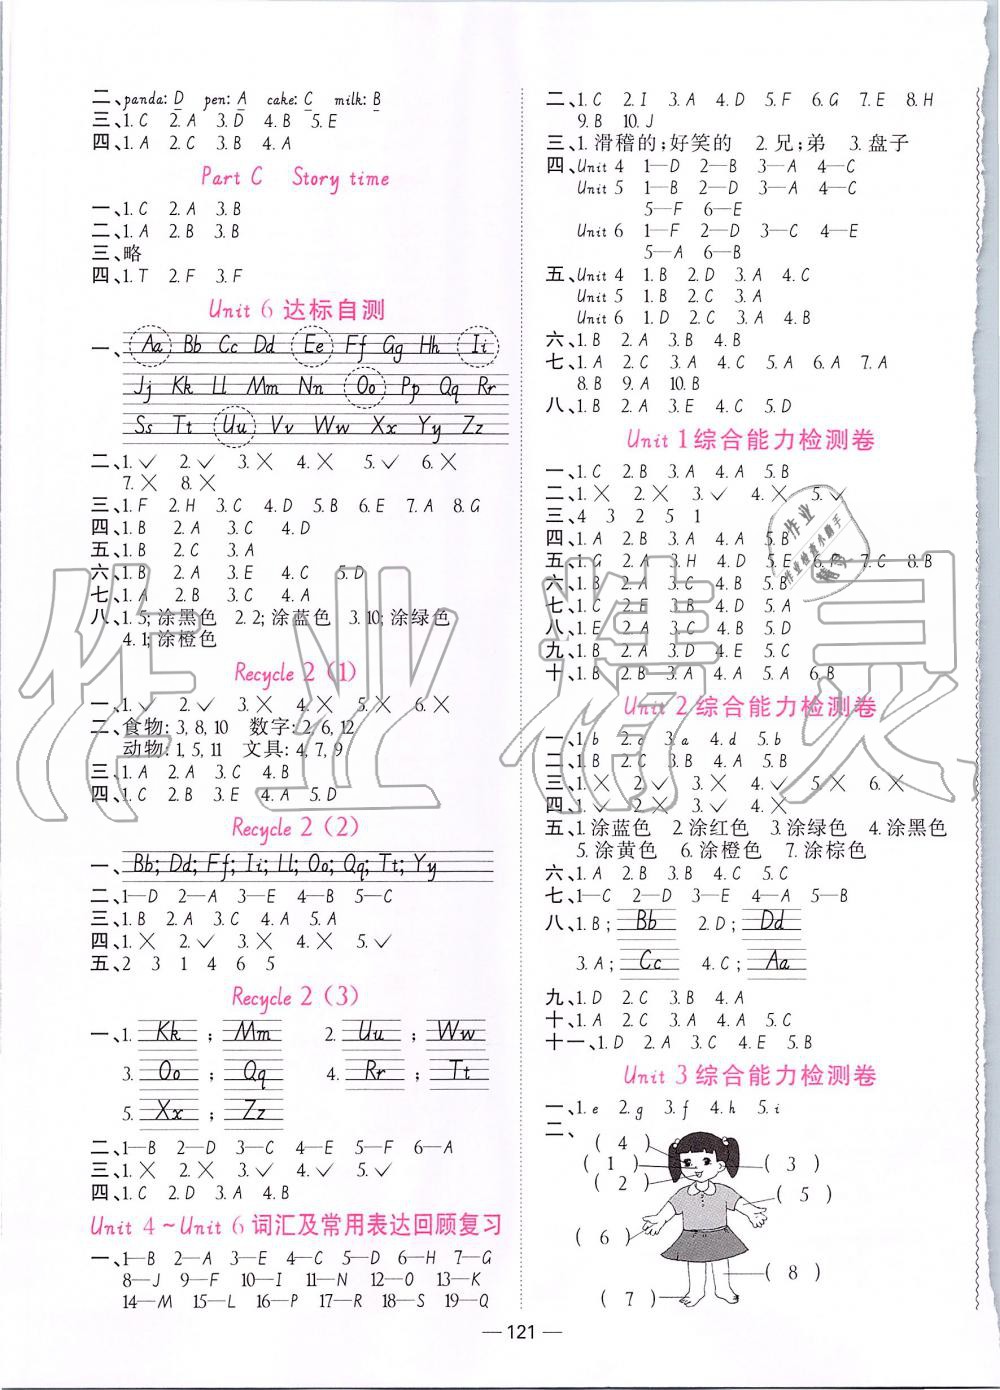 二、panda: D pen: A cake: C milk: B
三、1. C 2. A 3. D 4. B 5. E
四、1. A 2. C 3. B 4. A
Part C Story time
一、1. C 2. A 3. B
二、1. A 2. B 3. B
三、略
四、1. T 2. F 3. F
Unit 6 达标自测
一、Aa Bb Cc Dd Ee Ff Gg Hh Ii
Jj Kk Ll Mm Nn Oo Pp Qq Rr
Ss Tt Uu Vv Ww Xx Yy Zz
二、1. ✓ 2. ✓ 3. ✕ 4. ✕ 5. ✓ 6. ✕
7. ✕ 8. ✕
三、1. F 2. H 3. C 4. D 5. B 6. E 7. A 8. G
四、1. B 2. A 3. C 4. D
五、1. B 2. A 3. C
六、1. B 2. A 3. E 4. C 5. D
七、1. A 2. B 3. C 4. A
八、1. 5; 涂黑色 2. 2; 涂蓝色 3. 10; 涂绿色
4. 1; 涂橙色
Recycle 2 (1)
一、1. ✓ 2. ✓ 3. ✕ 4. ✕ 5. ✕ 6. ✕
二、食物: 3, 8, 10 数字: 2, 6, 12
动物: 1, 5, 11 文具: 4, 7, 9
三、1. A 2. A 3. C 4. B
四、1. C 2. B 3. E 4. A 5. D
Recycle 2 (2)
一、Bb; Dd; Ff; Ii; Ll; Oo; Qq; Tt; Yy
二、1—D 2—A 3—E 4—B 5—C
三、1. B 2. A 3. C 4. A 5. A
四、1. ✕ 2. ✓ 3. ✕ 4. ✕ 5. ✓
五、2 3 1 4 6 5
Recycle 2 (3)
一、1. Kk ; Mm 2. Uu ; Ww
3. Oo ; Qq 4. Rr ; Tt
5. Xx ; Zz
二、1—B 2—D 3—C 4—E 5—F 6—A
三、1. ✕ 2. ✕ 3. ✓ 4. ✓ 5. ✓
四、1. C 2. D 3. A 4. B
Unit 4 ~ Unit 6 词汇及常用表达回顾复习
一、1—B 2—A 3—E 4—C 5—D 6—H 7—G
8—J 9—F 10—I 11—N 12—O 13—K
14—M 15—L 16—P 17—R 18—S 19—Q
二、1. C 2. I 3. A 4. D 5. F 6. G 7. E 8. H
9. B 10. J
三、1. 滑稽的; 好笑的 2. 兄; 弟 3. 盘子
四、Unit 4 1—D 2—B 3—A 4—C
Unit 5 1—B 2—D 3—A 4—C
5—F 6—E
Unit 6 1—F 2—D 3—C 4—E
5—A 6—B
五、Unit 4 1. B 2. D 3. A 4. C
Unit 5 1. B 2. C 3. A
Unit 6 1. D 2. C 3. A 4. B
六、1. B 2. A 3. B 4. B
七、1. A 2. C 3. A 4. B 5. A 6. A 7. A
8. B 9. A 10. B
八、1. B 2. A 3. E 4. C 5. D
Unit 1 综合能力检测卷
一、1. C 2. B 3. A 4. A 5. B
二、1. ✕ 2. ✕ 3. ✓ 4. ✕ 5. ✓
三、4 3 2 5 1
四、1. A 2. B 3. A 4. A 5. B
五、1. G 2. A 3. H 4. D 5. E 7. C 8. B
六、1. B 2. A 3. C 4. B 5. B
七、1. C 2. E 3. B 4. D 5. A
八、1. E 2. A 3. C 4. B 5. D
九、1. B 2. A 3. D 4. E 5. C
十、1. B 2. B 3. A 4. A 5. A 6. B
Unit 2 综合能力检测卷
一、1. b 2. c 3. a 4. d 5. b
二、1. B 2. C 3. A 4. B 5. A
三、1. ✕ 2. ✕ 3. ✓ 4. ✓ 5. ✕ 6. ✕
四、1. ✓ 2. ✕ 3. ✓ 4. ✕
五、1. 涂蓝色 2. 涂红色 3. 涂绿色 4. 涂黑色
5. 涂黄色 6. 涂橙色 7. 涂棕色
六、1. A 2. B 3. B 4. C 5. C
七、1—C 2—D 3—E 4—A 5—B
八、1. B; Bb 2. D; Dd
3. A; Cc 4. C; Aa
九、1. D 2. C 3. B 4. A
十、1. A 2. C 3. A 4. A 5. C
十一、1. D 2. A 3. C 4. E 5. B
Unit 3 综合能力检测卷
一、1. e 2. g 3. f 4. h 5. i
二、
( 4 )
( 1 ) ( 3 )
( 2 )
( 5 )
( 6 )
( 8 )
( 7 )
— 121 —
作业精灵
作业
作业检查小助手
精灵